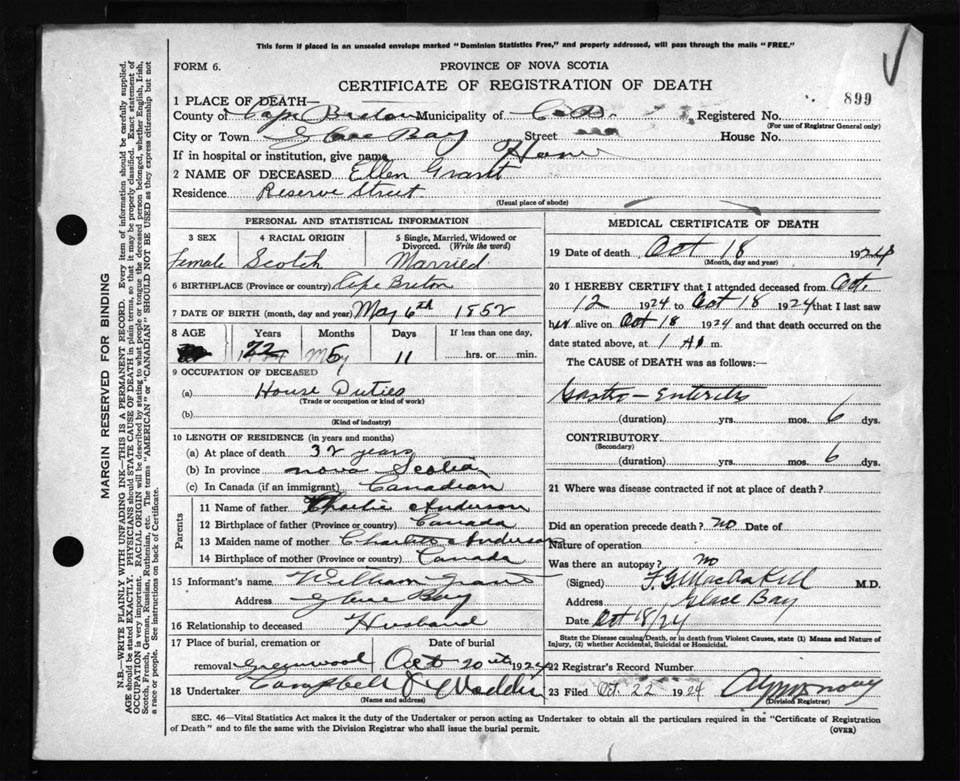 This form if placed in an unsealed envelope marked "Dominion Statistics Free," and properly addressed, will pass through the mails "FREE."
FORM 6.
PROVINCE OF NOVA SCOTIA
CERTIFICATE OF REGISTRATION OF DEATH
899
1 PLACE OF DEATH—
County of Cape Breton Municipality of C. B. Registered No.
(For use of Registrar General only)
City or Town Glace Bay Street House No.
If in hospital or institution, give name Home
2 NAME OF DECEASED Ellen Grant
Residence Reserve Street
(Usual place of abode)
PERSONAL AND STATISTICAL INFORMATION
3 SEX 4 RACIAL ORIGIN 5 Single, Married, Widowed or Divorced. (Write the word)
Female Scotch Married
6 BIRTHPLACE (Province or country) Cape Breton
7 DATE OF BIRTH (month, day and year) May 6th 1852
8 AGE Years Months Days If less than one day,
72 5 11 hrs. or min.
9 OCCUPATION OF DECEASED
(a) House Duties
(Trade or occupation or kind of work)
(b)
(Kind of industry)
10 LENGTH OF RESIDENCE (in years and months)
(a) At place of death 32 years
(b) In province Nova Scotia
(c) In Canada (if an immigrant) Canadian
Parents
11 Name of father Charlie Anderson
12 Birthplace of father (Province or country) Canada
13 Maiden name of mother Anderson
14 Birthplace of mother (Province or country) Canada
15 Informant's name William Grant
Address Glace Bay
16 Relationship to deceased Husband
17 Place of burial, cremation or removal Greenwood
Date of burial Oct 20th 1924
18 Undertaker Campbell
(Name and address)
MEDICAL CERTIFICATE OF DEATH
19 Date of death Oct 18 1924
(Month, day and year)
20 I HEREBY CERTIFY that I attended deceased from Oct.
12 1924 to Oct 18 1924 that I last saw
her alive on Oct 18 1924 and that death occurred on
date stated above, at 1 A. m.
The CAUSE OF DEATH was as follows:—
Gastro-Enteritis
(duration) yrs. mos. 6 dys.
CONTRIBUTORY
(Secondary)
(duration) yrs. mos. 6 dys.
21 Where was disease contracted if not at place of death?
Did an operation precede death? no Date of
Nature of operation
Was there an autopsy? no
(Signed) M.D.
Address Glace Bay
Date Oct 18/24
State the Disease causing Death, or in death from Violent Causes, state (1) Means and Nature of
Injury, (2) whether Accidental, Suicidal or Homicidal.
22 Registrar's Record Number
23 Filed Oct. 22 1924
(Division Registrar)
SEC. 46—Vital Statistics Act makes it the duty of the Undertaker or person acting as Undertaker to obtain all the particulars required in the "Certificate of Registration
of Death" and to file the same with the Division Registrar who shall issue the burial permit. (OVER)
MARGIN RESERVED FOR BINDING
N.B.—WRITE PLAINLY WITH UNFADING INK—THIS IS A PERMANENT RECORD. Every item of information should be carefully supplied.
AGE should be stated EXACTLY. PHYSICIANS should STATE CAUSE OF DEATH in plain terms, so that it may be properly classified. Exact statement of
OCCUPATION is very important. RACIAL ORIGIN will be described by stating to what people or tongue the deceased person belonged, whether English, Irish,
Scotch, French, German, Russian, Ruthenian, etc. The terms "AMERICAN" or "CANADIAN" SHOULD NOT BE USED as they express citizenship but not
a race or people. See instructions on back of Certificate.